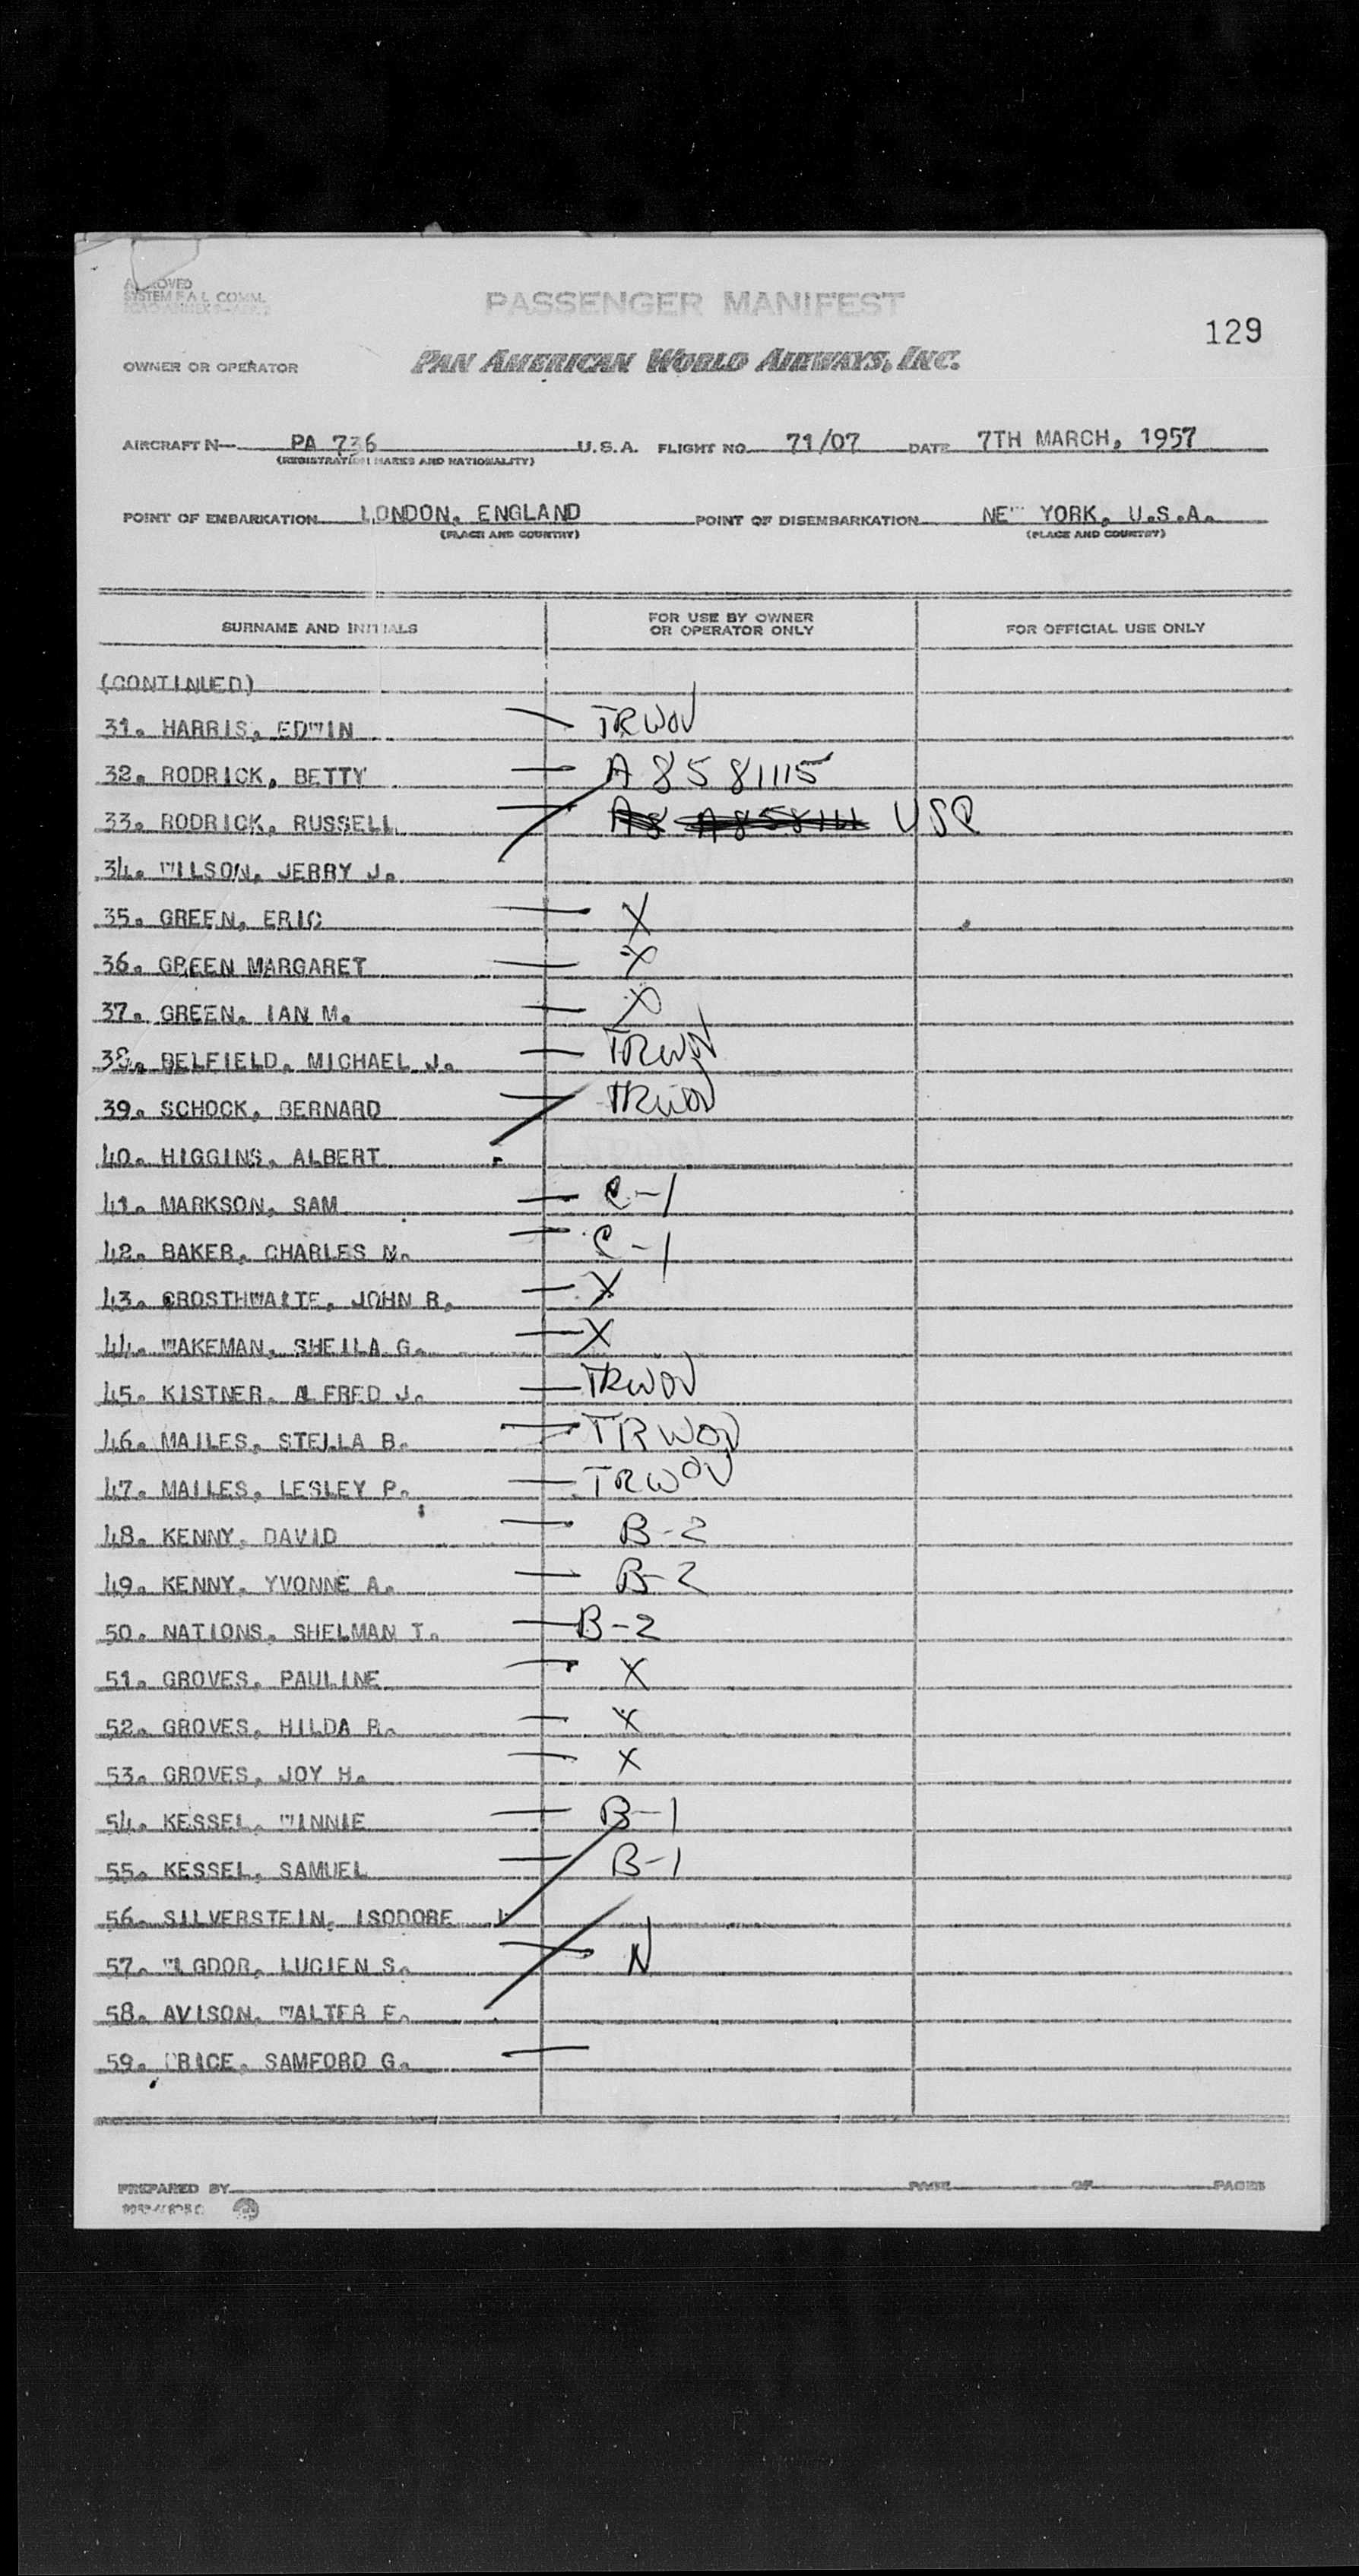 APPROVED
SYSTEM F.A.L. COMM.
PASSENGER MANIFEST
129
OWNER OR OPERATOR PAN AMERICAN WORLD AIRWAYS, INC.
AIRCRAFT N— PA 736 U.S.A. FLIGHT NO. 71/07 DATE 7TH MARCH, 1957
(REGISTRATION MARKS AND NATIONALITY)
POINT OF EMBARKATION LONDON, ENGLAND POINT OF DISEMBARKATION NEW YORK, U.S.A.
(PLACE AND COUNTRY) (PLACE AND COUNTRY)
SURNAME AND INITIALS FOR USE BY OWNER OR OPERATOR ONLY FOR OFFICIAL USE ONLY
(CONTINUED)
31. HARRIS, EDWIN — TRWOV
32. RODRICK, BETTY — A8581115
33. RODRICK, RUSSELL — USC
34. WILSON, JERRY J.
35. GREEN, ERIC — X
36. GREEN MARGARET — X
37. GREEN, IAN M. — X
38. BELFIELD, MICHAEL J. — TRWOV
39. SCHOCK, BERNARD — TRWOV
40. HIGGINS, ALBERT
41. MARKSON, SAM — C-1
42. BAKER, CHARLES N. — C-1
43. CROSTHWAITE, JOHN R. — X
44. WAKEMAN, SHEILA G. — X
45. KISTNER, ALFRED J. — TRWOV
46. MAILES, STELLA B. — TRWOV
47. MAILES, LESLEY P. — TRWOV
48. KENNY, DAVID — B-2
49. KENNY, YVONNE A. — B-2
50. NATIONS, SHELMAN T. — B-2
51. GROVES, PAULINE — X
52. GROVES, HILDA R. — X
53. GROVES, JOY H. — X
54. KESSEL, WINNIE — B-1
55. KESSEL, SAMUEL — B-1
56. SILVERSTEIN, ISODORE
57. WIGDOR, LUCIEN S. — N
58. AVISON, WALTER E.
59. PRICE, SAMFORD G. —
PREPARED BY PAGE OF PAGES